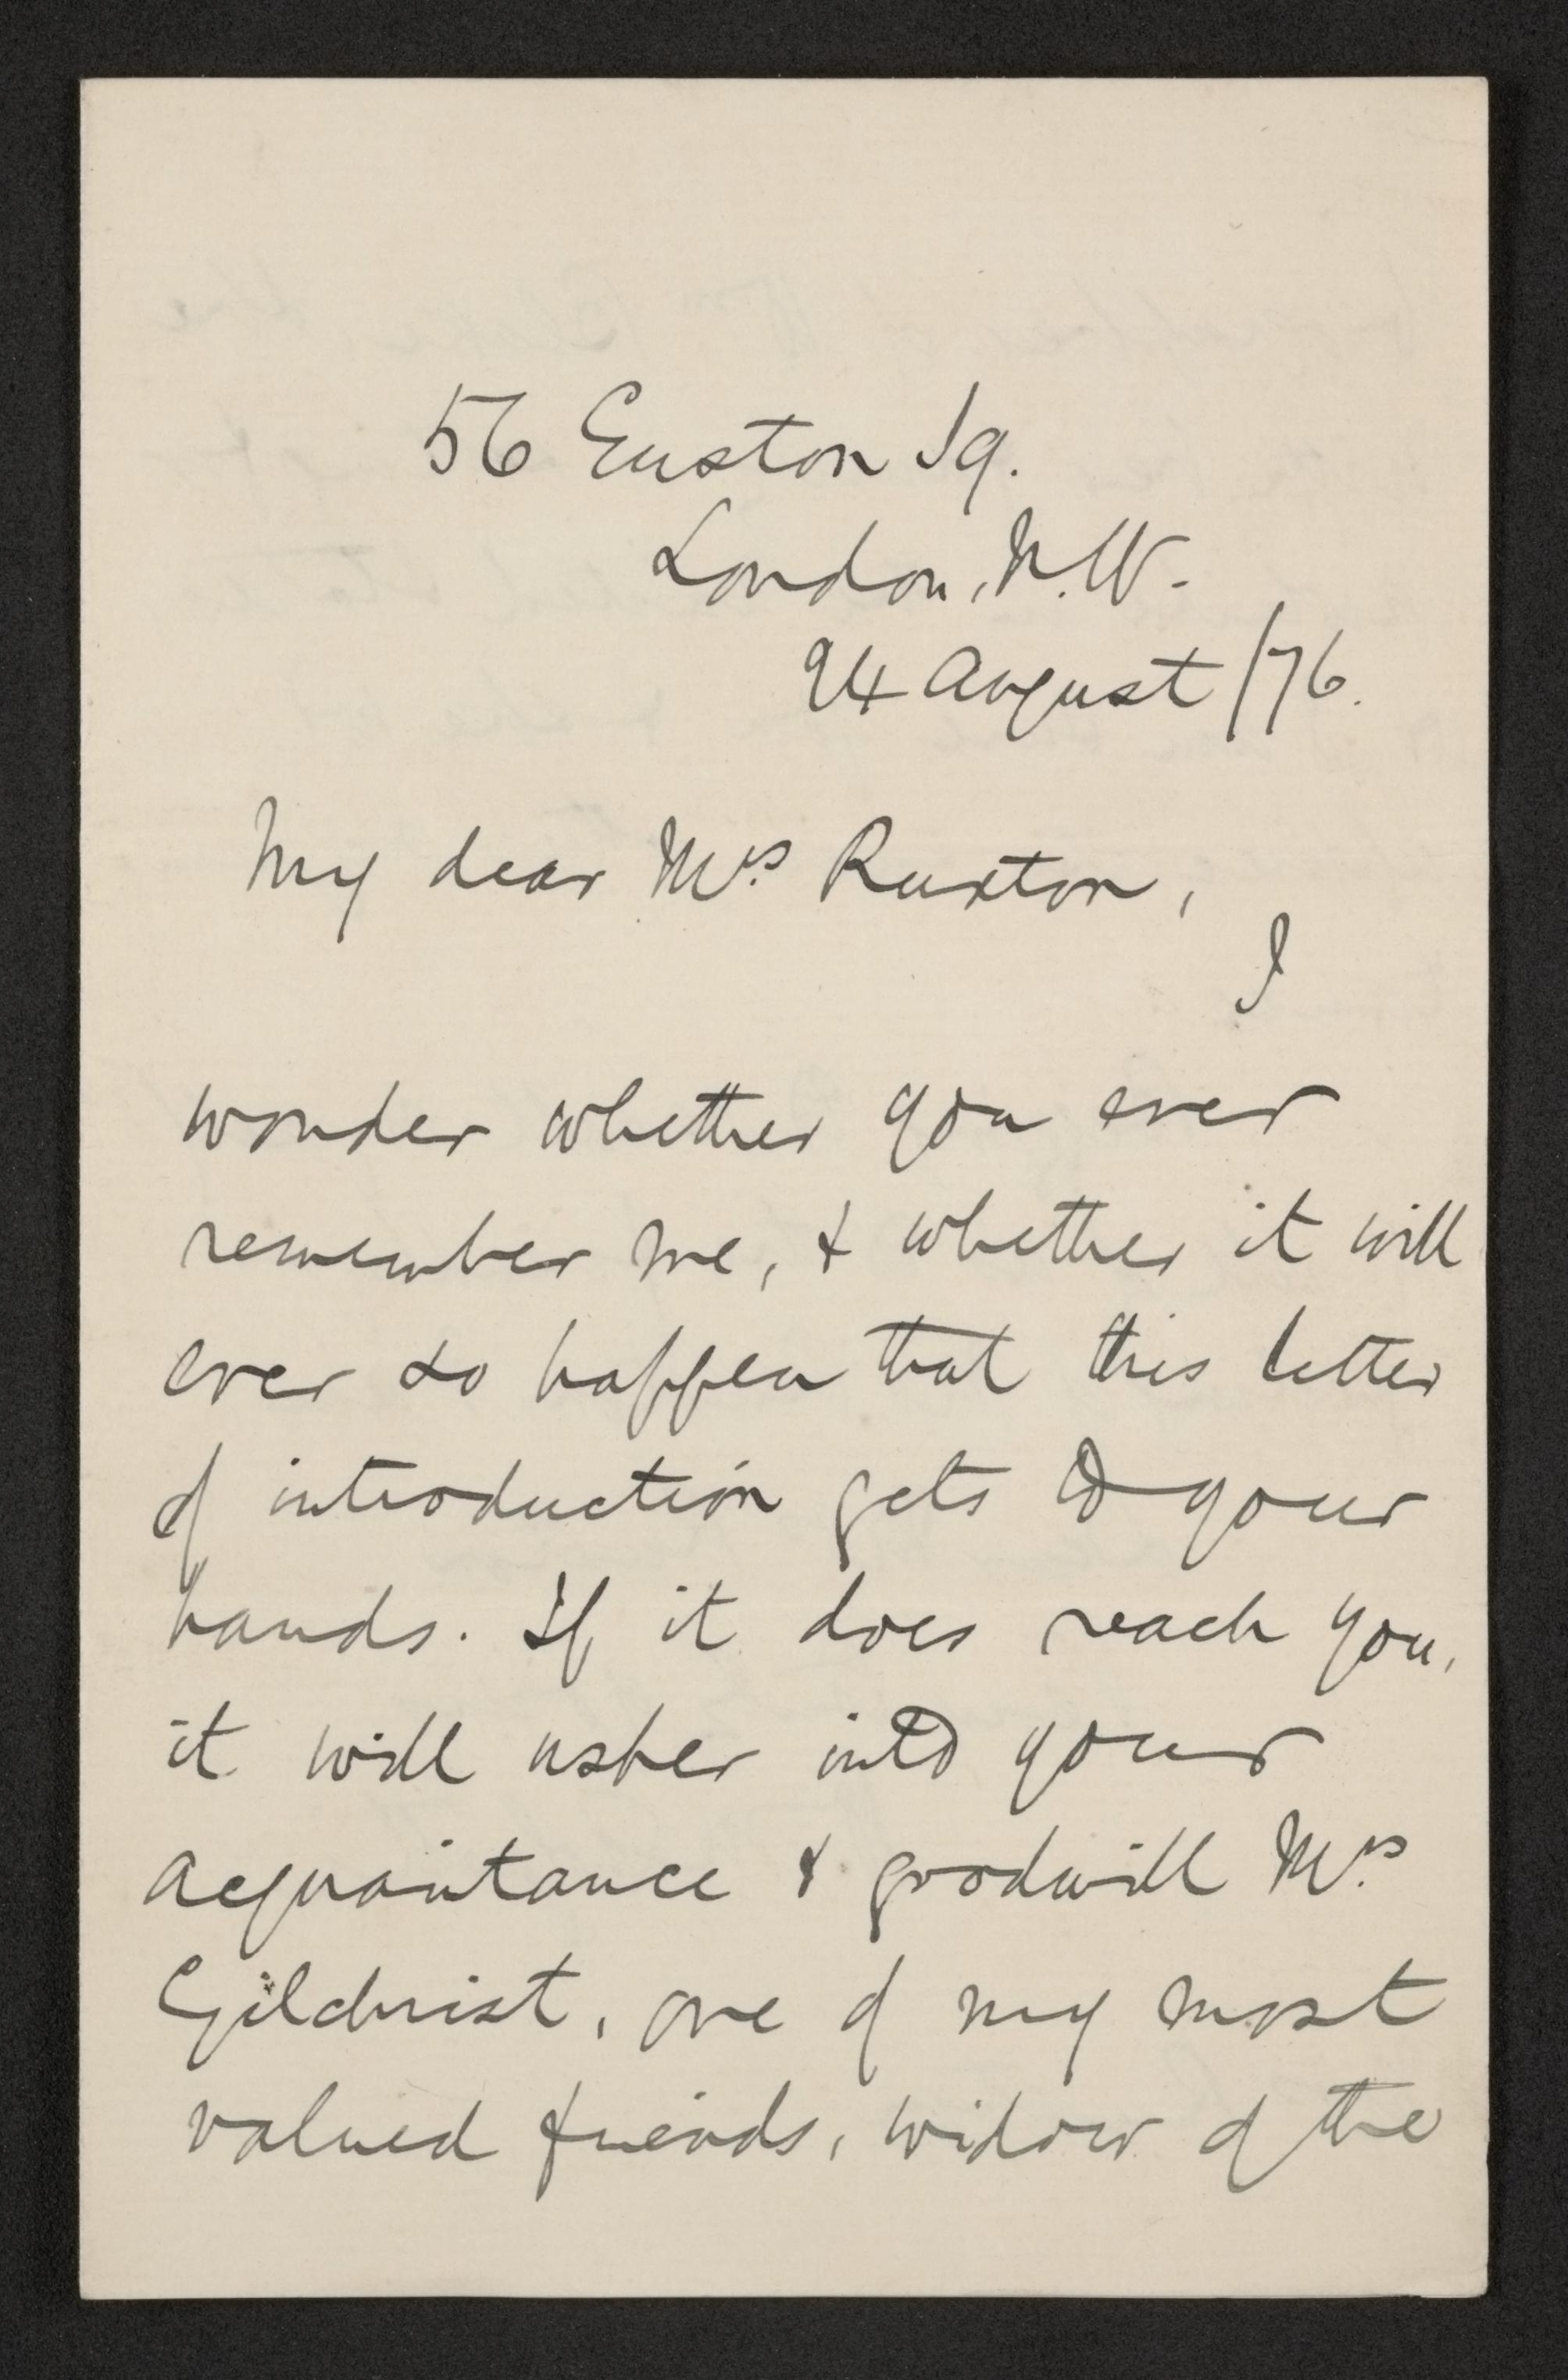 56 Euston Sq.
London, N.W.
24 August /76.
My dear Mrs. Ruxton,
I
wonder whether you ever
remember me, & whether it will
ever so happen that this letter
of introduction gets to your
hands. If it does reach you,
it will usher into your
acquaintance & goodwill Mrs.
Gilchrist, one of my most
valued friends, widow of the